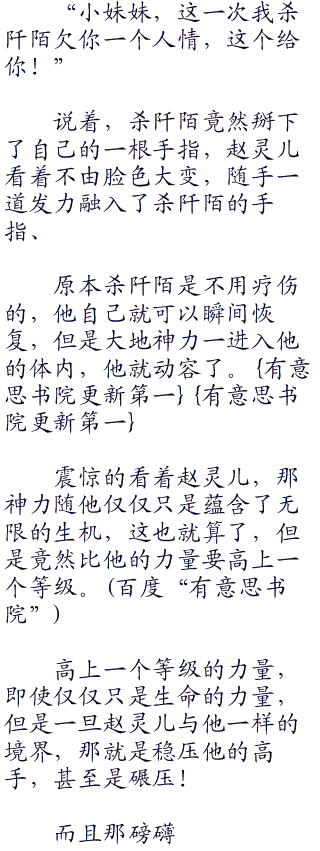 “小妹妹，这一次我杀
阡陌欠你一个人情，这个给
你！”
说着，杀阡陌竟然掰下
了自己的一根手指，赵灵儿
看着不由脸色大变，随手一
道发力融入了杀阡陌的手
指、
原本杀阡陌是不用疗伤
的，他自己就可以瞬间恢
复，但是大地神力一进入他
的体内，他就动容了。{有意
思书院更新第一}{有意思书
院更新第一}
震惊的看着赵灵儿，那
神力随他仅仅只是蕴含了无
限的生机，这也就算了，但
是竟然比他的力量要高上一
个等级。(百度“有意思书
院”)
高上一个等级的力量，
即使仅仅只是生命的力量，
但是一旦赵灵儿与他一样的
境界，那就是稳压他的高
手，甚至是碾压！
而且那磅礴